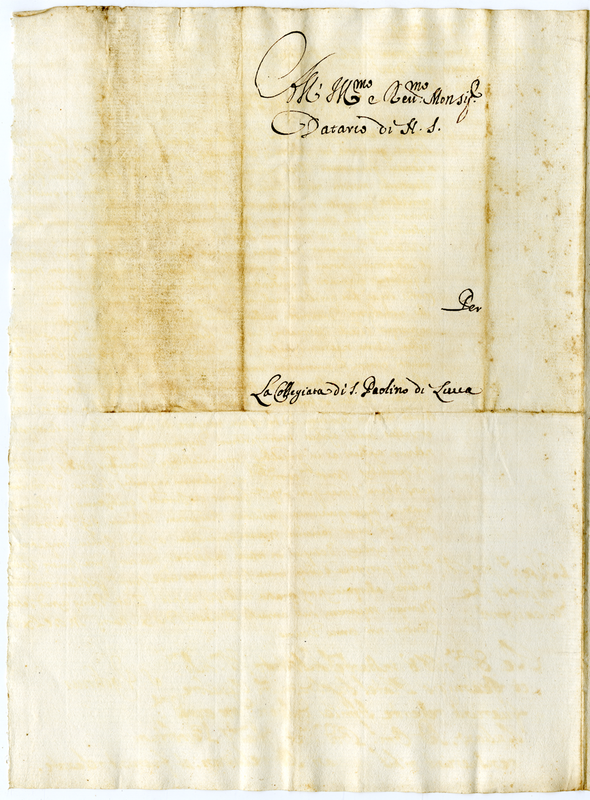 All' Ill.mo e Reu.mo Monsig.r
Datario di N. S.
Per
La Collegiata di S. Paolino di Lucca